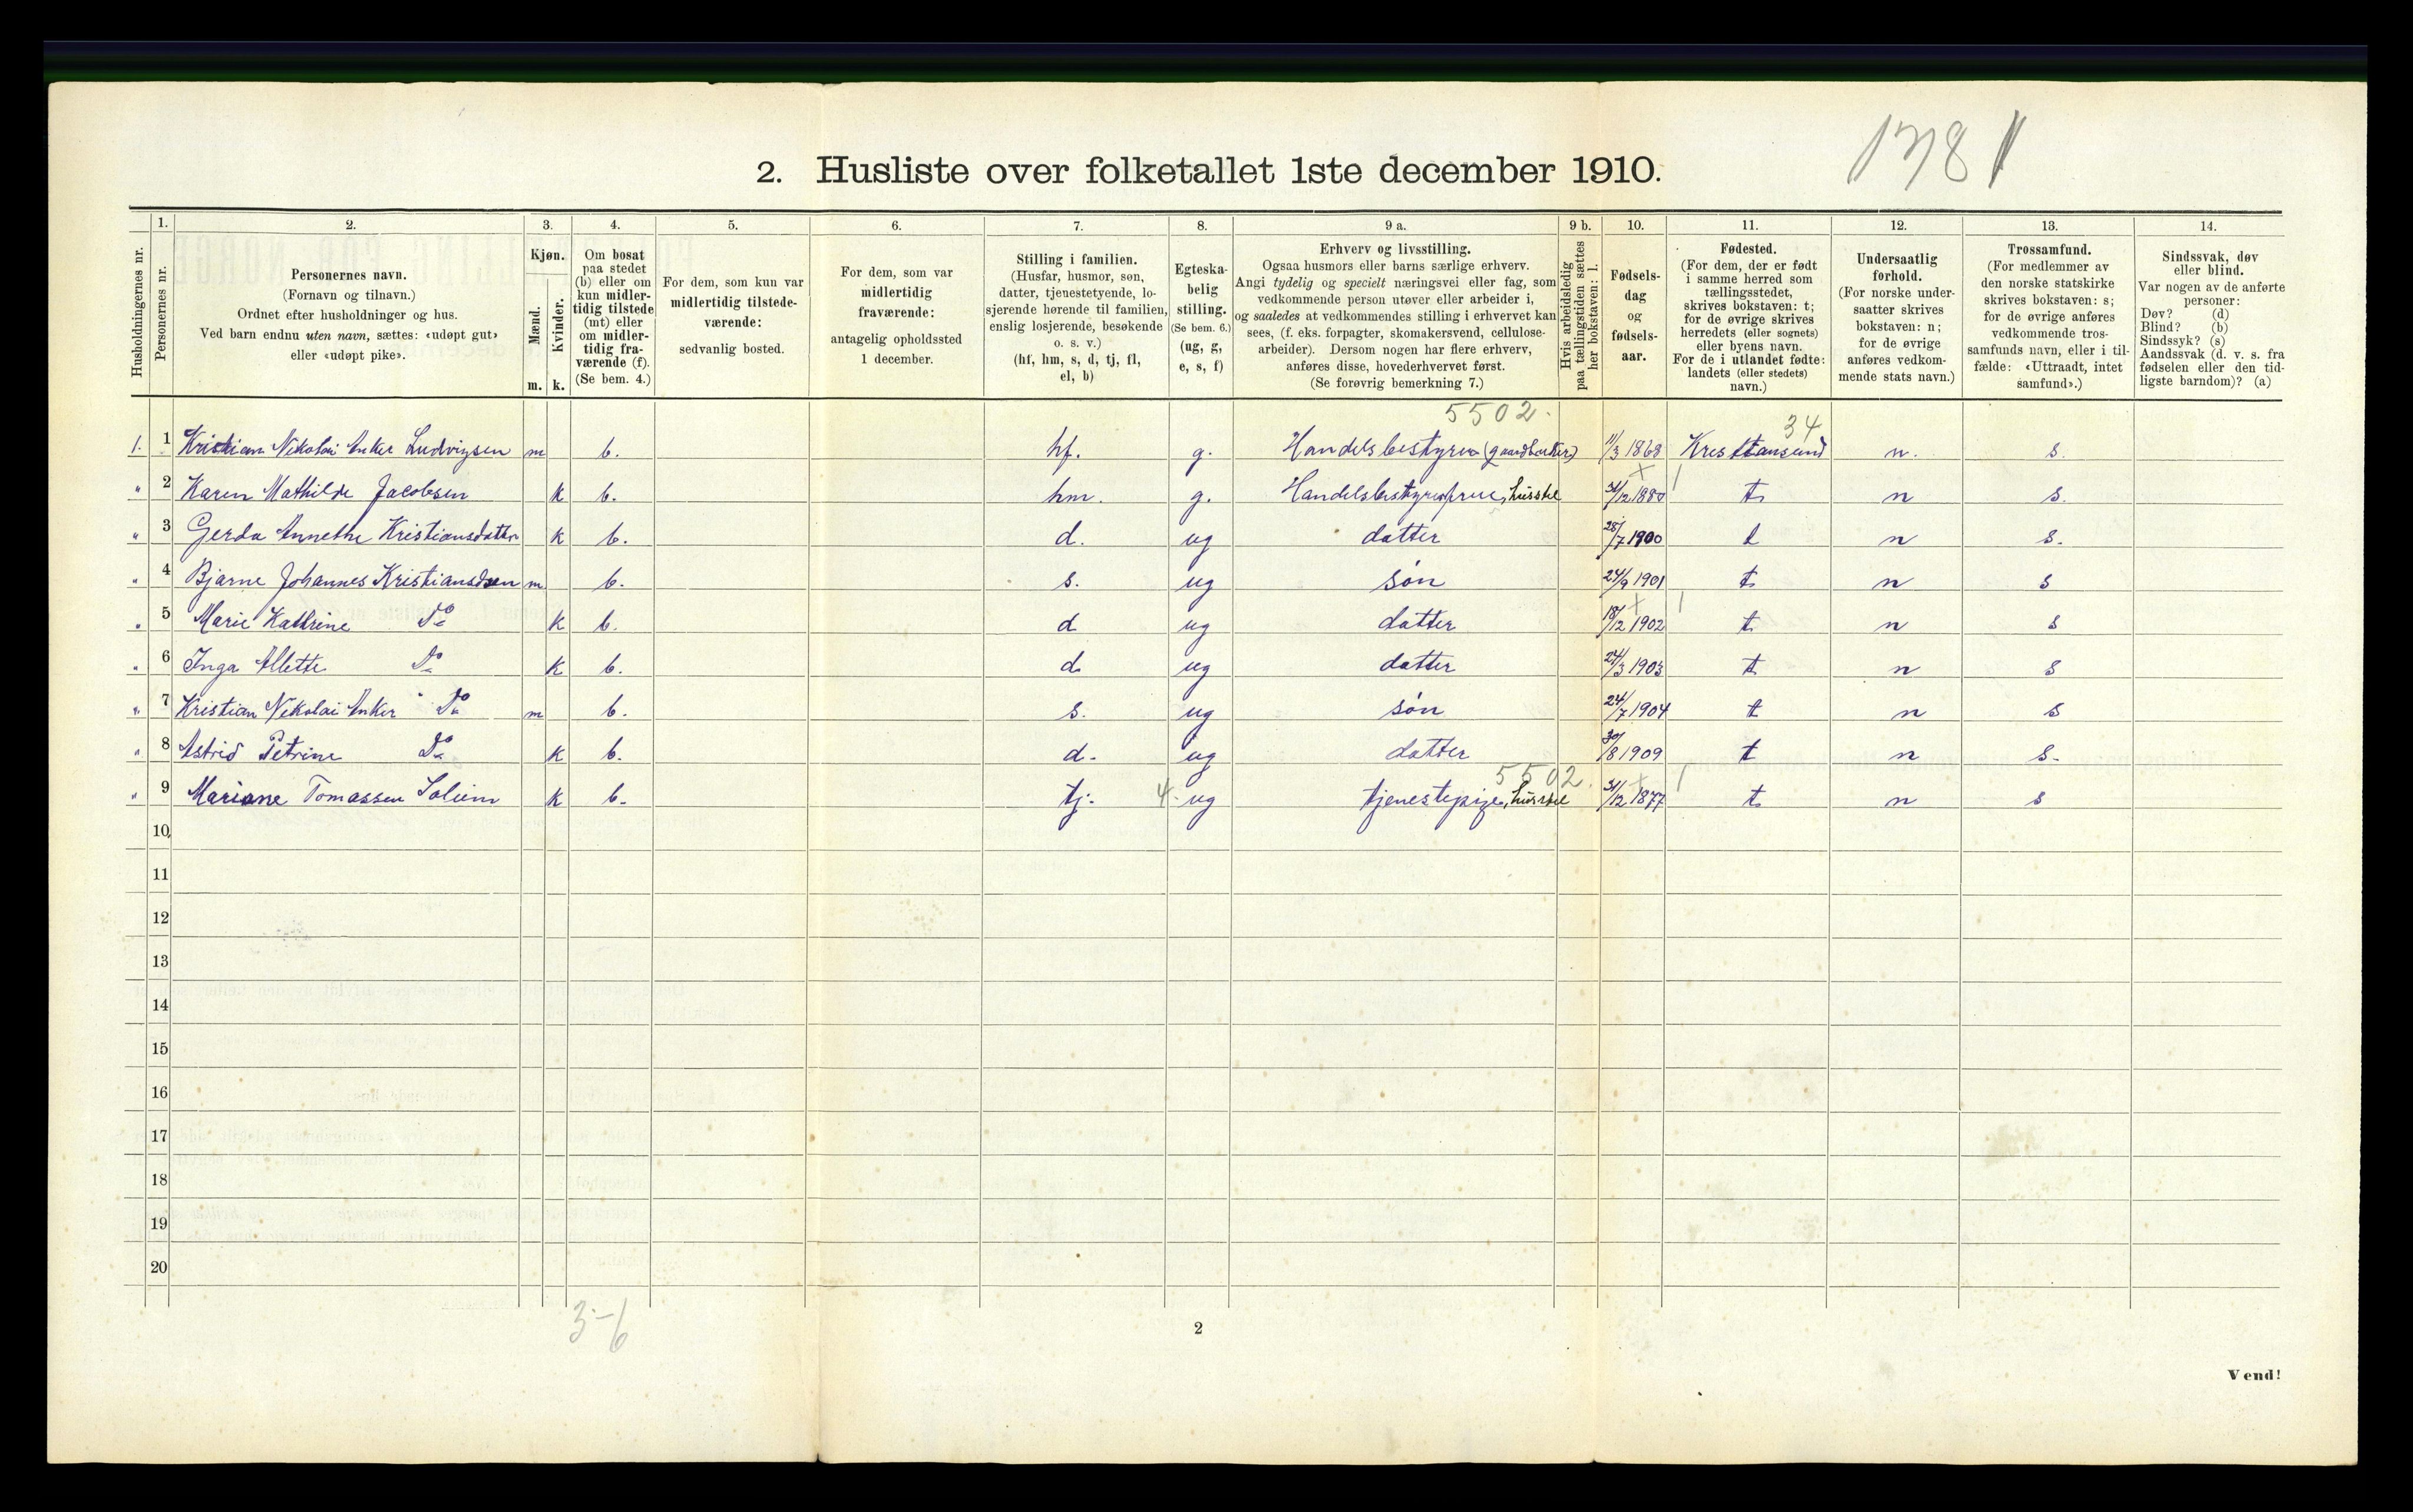 1381
2. Husliste over folketallet 1ste december 1910.
Husholdningernes nr.
1.
Personernes nr.
2.
Personernes navn.
(Fornavn og tilnavn.)
Ordnet efter husholdninger og hus.
Ved barn endnu uten navn, sættes: «udøpt gut»
eller «udøpt pike».
3.
Kjøn.
Mænd.
Kvinder.
m. k.
4.
Om bosat
paa stedet
(b) eller om
kun midler-
tidig tilstede
(mt) eller
om midler-
tidig fra-
værende (f).
(Se bem. 4.)
5.
For dem, som kun var
midlertidig tilstede-
værende:
sedvanlig bosted.
6.
For dem, som var
midlertidig
fraværende:
antagelig opholdssted
1 december.
7.
Stilling i familien.
(Husfar, husmor, søn,
datter, tjenestetyende, lo-
sjerende hørende til familien,
enslig losjerende, besøkende
o. s. v.)
(hf, hm, s, d, tj, fl,
el, b)
8.
Egteska-
belig
stilling.
(Se bem. 6.)
(ug, g,
e, s, f)
9 a.
Erhverv og livsstilling.
Ogsaa husmors eller barns særlige erhverv.
Angi tydelig og specielt næringsvei eller fag, som
vedkommende person utøver eller arbeider i,
og saaledes at vedkommendes stilling i erhvervet kan
sees, (f. eks. forpagter, skomakersvend, cellulose-
arbeider). Dersom nogen har flere erhverv,
anføres disse, hovederhvervet først.
(Se forøvrig bemerkning 7.)
9 b.
Hvis arbeidsledig
paa tællingstiden sættes
her bokstaven: l.
10.
Fødsels-
dag
og
fødsels-
aar.
11.
Fødested.
(For dem, der er født
i samme herred som
tællingsstedet,
skrives bokstaven: t;
for de øvrige skrives
herredets (eller sognets)
eller byens navn.
For de i utlandet fødte:
landets (eller stedets)
navn.)
12.
Undersaatlig
forhold.
(For norske under-
saatter skrives
bokstaven: n;
for de øvrige
anføres vedkom-
mende stats navn.)
13.
Trossamfund.
(For medlemmer av
den norske statskirke
skrives bokstaven: s;
for de øvrige anføres
vedkommende tros-
samfunds navn, eller i til-
fælde: «Uttraadt, intet
samfund».)
14.
Sindssvak, døv
eller blind.
Var nogen av de anførte
personer:
Døv? (d)
Blind? (b)
Sindssyk? (s)
Aandssvak (d. v. s. fra
fødselen eller den tid-
ligste barndom)? (a)
5502. 34
1. 1 Kristian Nikolai Anker Ludvigsen m b. hf. g. Handelsbestyrer (gaardbruker) 11/3 1868 Kristiansund n. s.
" 2 Karen Mathilde Jacobsen k b. hm. g. Handelsbestyrerfrue, husstel 31/12 1880 t. n s.
" 3 Gerda Annethe Kristiansdatter k b. d. ug datter 28/7 1900 t n s.
" 4 Bjarne Johannes Kristiansen m b. s. ug søn 24/9 1901 t. n s
" 5 Marie Kathrine Do k b. d ug datter 18/12 1902 t. n s
" 6 Inga Alette Do k b. d. ug datter 24/3 1903 t. n s
" 7 Kristian Nikolai Anker Do m b. s. ug søn 24/7 1904 t n s
" 8 Astrid Petrine Do k b. d. ug datter 30/8 1909 t n s.
5502.
" 9 Mariane Tomassen Soliem k b. tj. 4 ug tjenestepige, husstel 31/12 1877 t. n s
10
11
12
13
14
15
16
17
18
19
20
3-6
2
Vend!